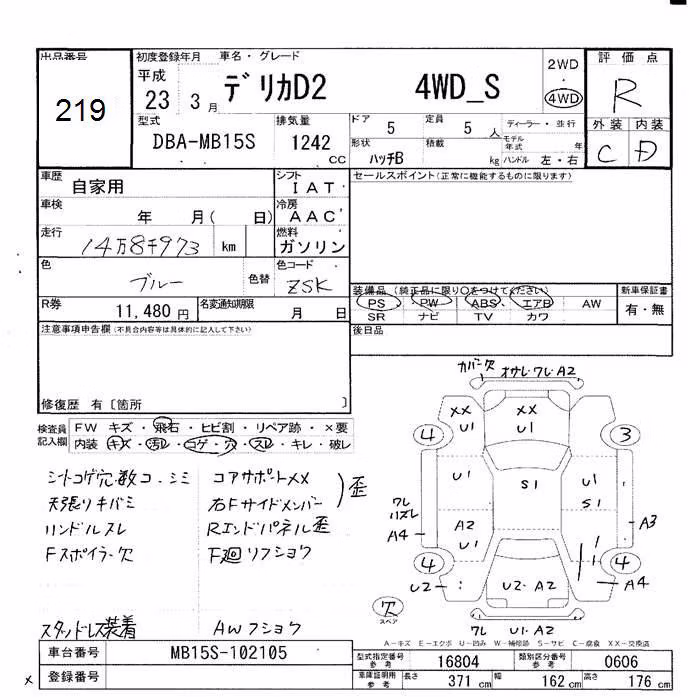 出品番号
219
初度登録年月
平成
23 3月
車名・グレード
デリカD2 4WD_S
2WD
・
4WD
評価点
R
型式
DBA-MB15S
排気量
1242 CC
ドア 5
定員 5人
ディーラー・並行
形状 ハッチB
積載 kg
モデル年式 年
ハンドル 左・右
外装 内装
C D
車歴 自家用
シフト IAT
車検 年 月( 日)
冷房 AAC
走行 14万8千973 km
燃料 ガソリン
色 ブルー 色替
色コード ZSK
R券 11,480円
名変通知期限 月 日
セールスポイント(正常に機能するものに限ります)
装備品 (純正品に限り○をつけてください)
PS PW ABS エアB AW
SR ナビ TV カワ
新車保証書
有・無
後日品
注意事項申告欄(不具合内容等は具体的に記入して下さい)
修復歴 有〔箇所 〕
検査員記入欄
FW キズ・飛石・ヒビ割・リペア跡・×要
内装 キズ・汚レ・コゲ・穴・スレ・キレ・破レ
シートコゲ穴数コ・シミ
天張りキバミ
ハンドルスレ
Fスポイラー欠
スタッドレス装着
コアサポートXX
右Fサイドメンバー
歪
Rエンドパネル歪
F廻リフショウ
AWフショウ
カバー欠
オサレ・ワレ・A2
XX U1
XX U1
4
3
U1
S1
U1 S1
ワレ ハズレ
A4
A2 U1
A3
4
4
U2
U2・A2
A4
欠
スペア
ワレ U1・A2
A-キズ E-エクボ U-凹み W-補修跡 S-サビ C-腐食 XX-交換済
車台番号 MB15S-102105
登録番号
型式指定番号 参考 16804
類別区分番号 参考 0606
車庫証明用 参考
長さ 371 cm
幅 162 cm
高さ 176 cm